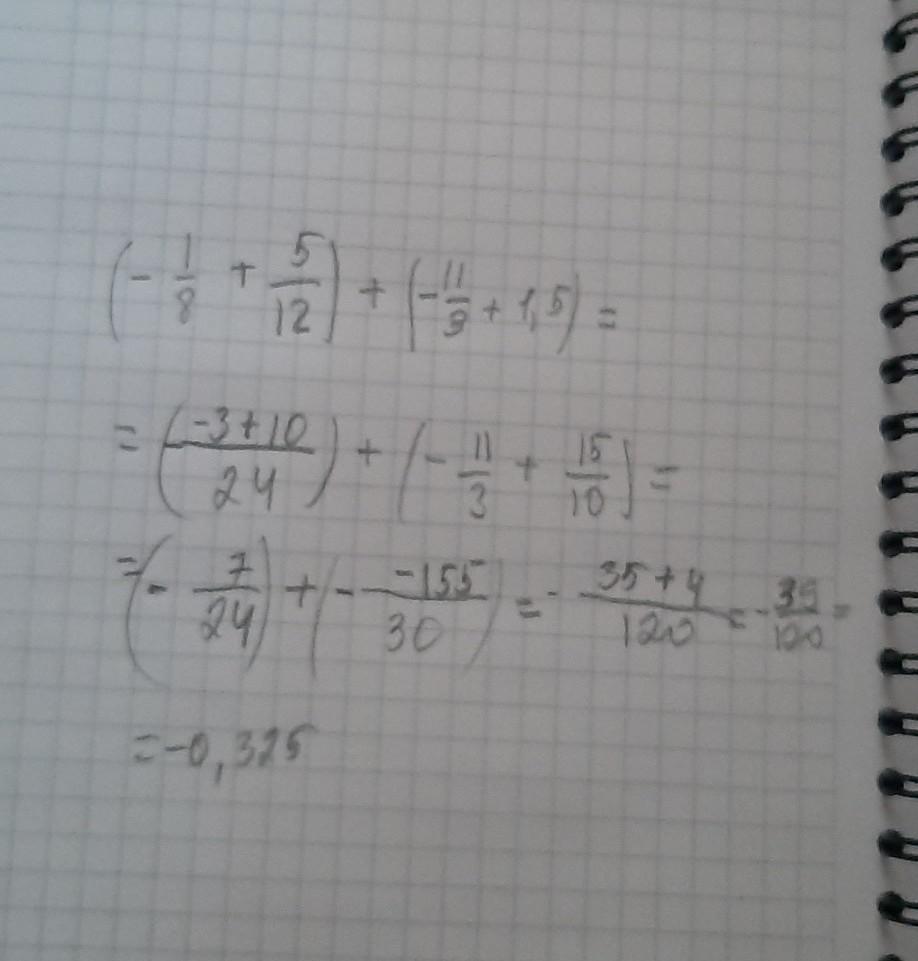 (- 1/8 + 5/12) + (- 11/9 + 1,5) =
= (-3+10/24) + (- 11/3 + 15/10) =
= (- 7/24) + (- -155/30) = - 35+4/120 = - 39/120 =
= -0,325